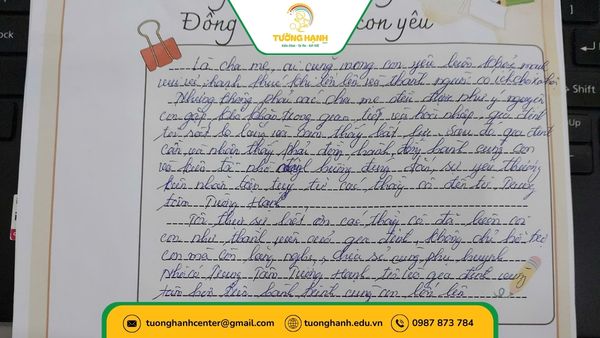 TƯỜNG HẠNH
Đồng con yêu
Là cha mẹ, ai cũng mong con yêu luôn khoẻ mạnh
vui vẻ, thành thục khi lớn lên và thành người có ích cho xã hội
Nhưng không phải các cha mẹ đều được như ý nguyện
con gặp khó khăn trong giao tiếp và hoà nhập, gia đình
tôi rất lo lắng và cảm thấy bất lực. Sau đó gia đình
cần và nhận thấy phải đồng hành cùng con
và kiên trì nhờ đúng hướng đúng đắn, sự yêu thương
kiên nhẫn tận tuỵ từ các thầy cô đến từ Trung
tâm Tường Hạnh
Tôi thực sự biết ơn các thầy cô đã luôn coi
con như thành viên của gia đình, không chỉ hỗ trợ
con mà còn lắng nghe, chia sẻ cùng phụ huynh
Nhờ có Trung Tâm Tường Hạnh tôi và gia đình vững
tâm hơn trên hành trình cùng con lớn lên
Shift
tuonghanhcenter@gmail.com
tuonghanh.edu.vn
0987 873 784